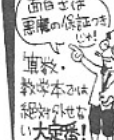 面白さは
悪魔の保証つき
じゃ!
算数・
数学本では
絶対外せな
い大定番!